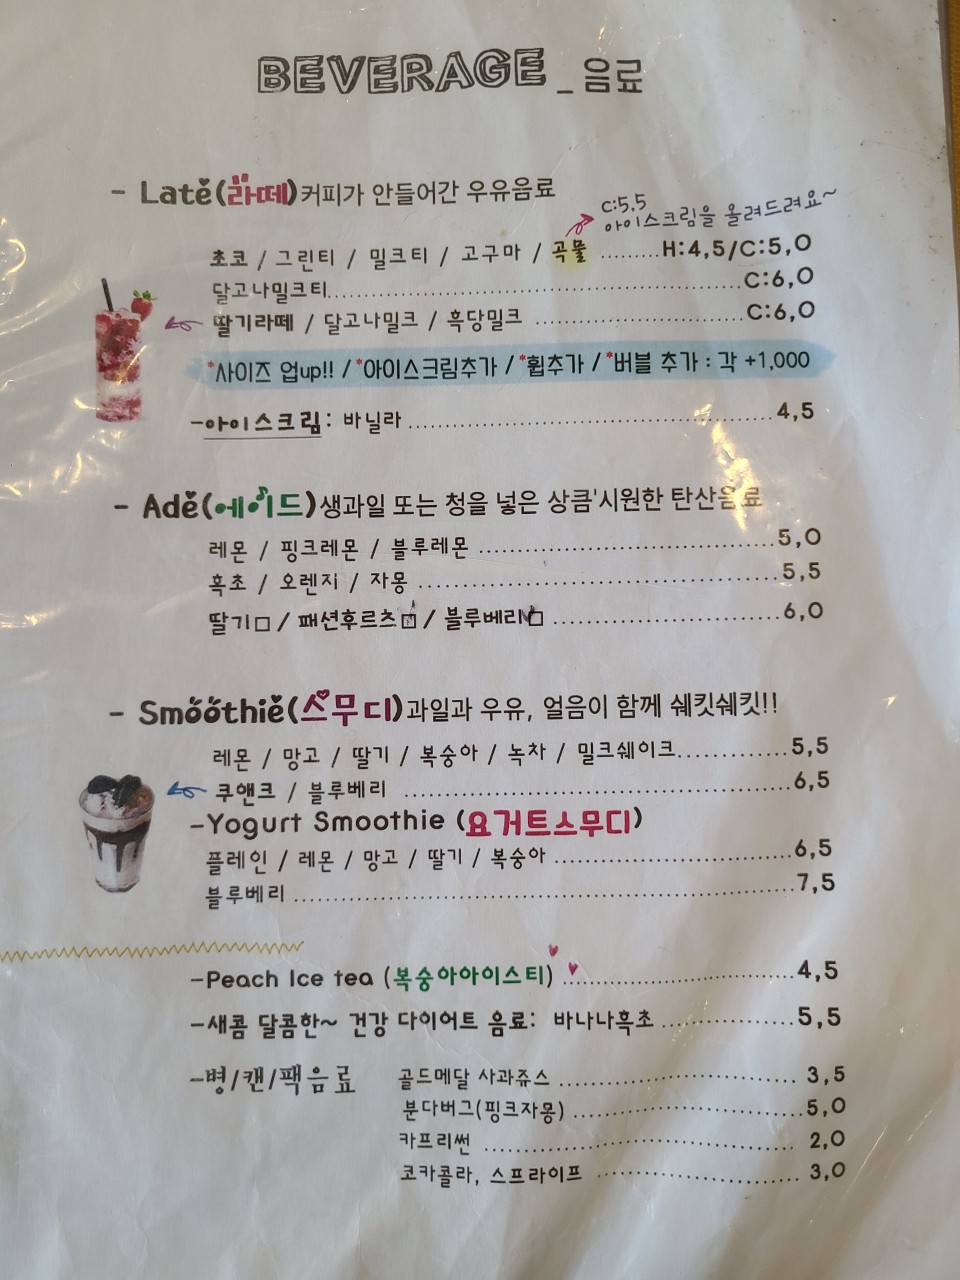 BEVERAGE _ 음료
- Laté(라떼)커피가 안들어간 우유음료
C:5,5
아이스크림을 올려드려요~
초코 / 그린티 / 밀크티 / 고구마 / 곡물 ........H:4,5/C:5,0
달고나밀크티................................................C:6,0
딸기라떼 / 달고나밀크 / 흑당밀크 ........................C:6,0
*사이즈 업up!! / *아이스크림추가 / *휩추가 / *버블 추가 : 각 +1,000
-아이스크림: 바닐라 ................................................4,5
- Adé(에이드)생과일 또는 청을 넣은 상큼'시원한 탄산음료
레몬 / 핑크레몬 / 블루레몬 ....................................5,0
흑초 / 오렌지 / 자몽 ............................................5,5
딸기□ / 패션후르츠□ / 블루베리□ ............................6,0
- Smoothie(스무디)과일과 우유, 얼음이 함께 쉐킷쉐킷!!
레몬 / 망고 / 딸기 / 복숭아 / 녹차 / 밀크쉐이크............5,5
쿠앤크 / 블루베리 ................................................6,5
-Yogurt Smoothie (요거트스무디)
플레인 / 레몬 / 망고 / 딸기 / 복숭아 ............................6,5
블루베리 ............................................................7,5
-Peach Ice tea (복숭아아이스티) ............................4,5
-새콤 달콤한~ 건강 다이어트 음료: 바나나흑초 ................5,5
-병/캔/팩음료 골드메달 사과쥬스 ............................3,5
분다버그(핑크자몽) ............................5,0
카프리썬 ........................................2,0
코카콜라, 스프라이프 ........................3,0